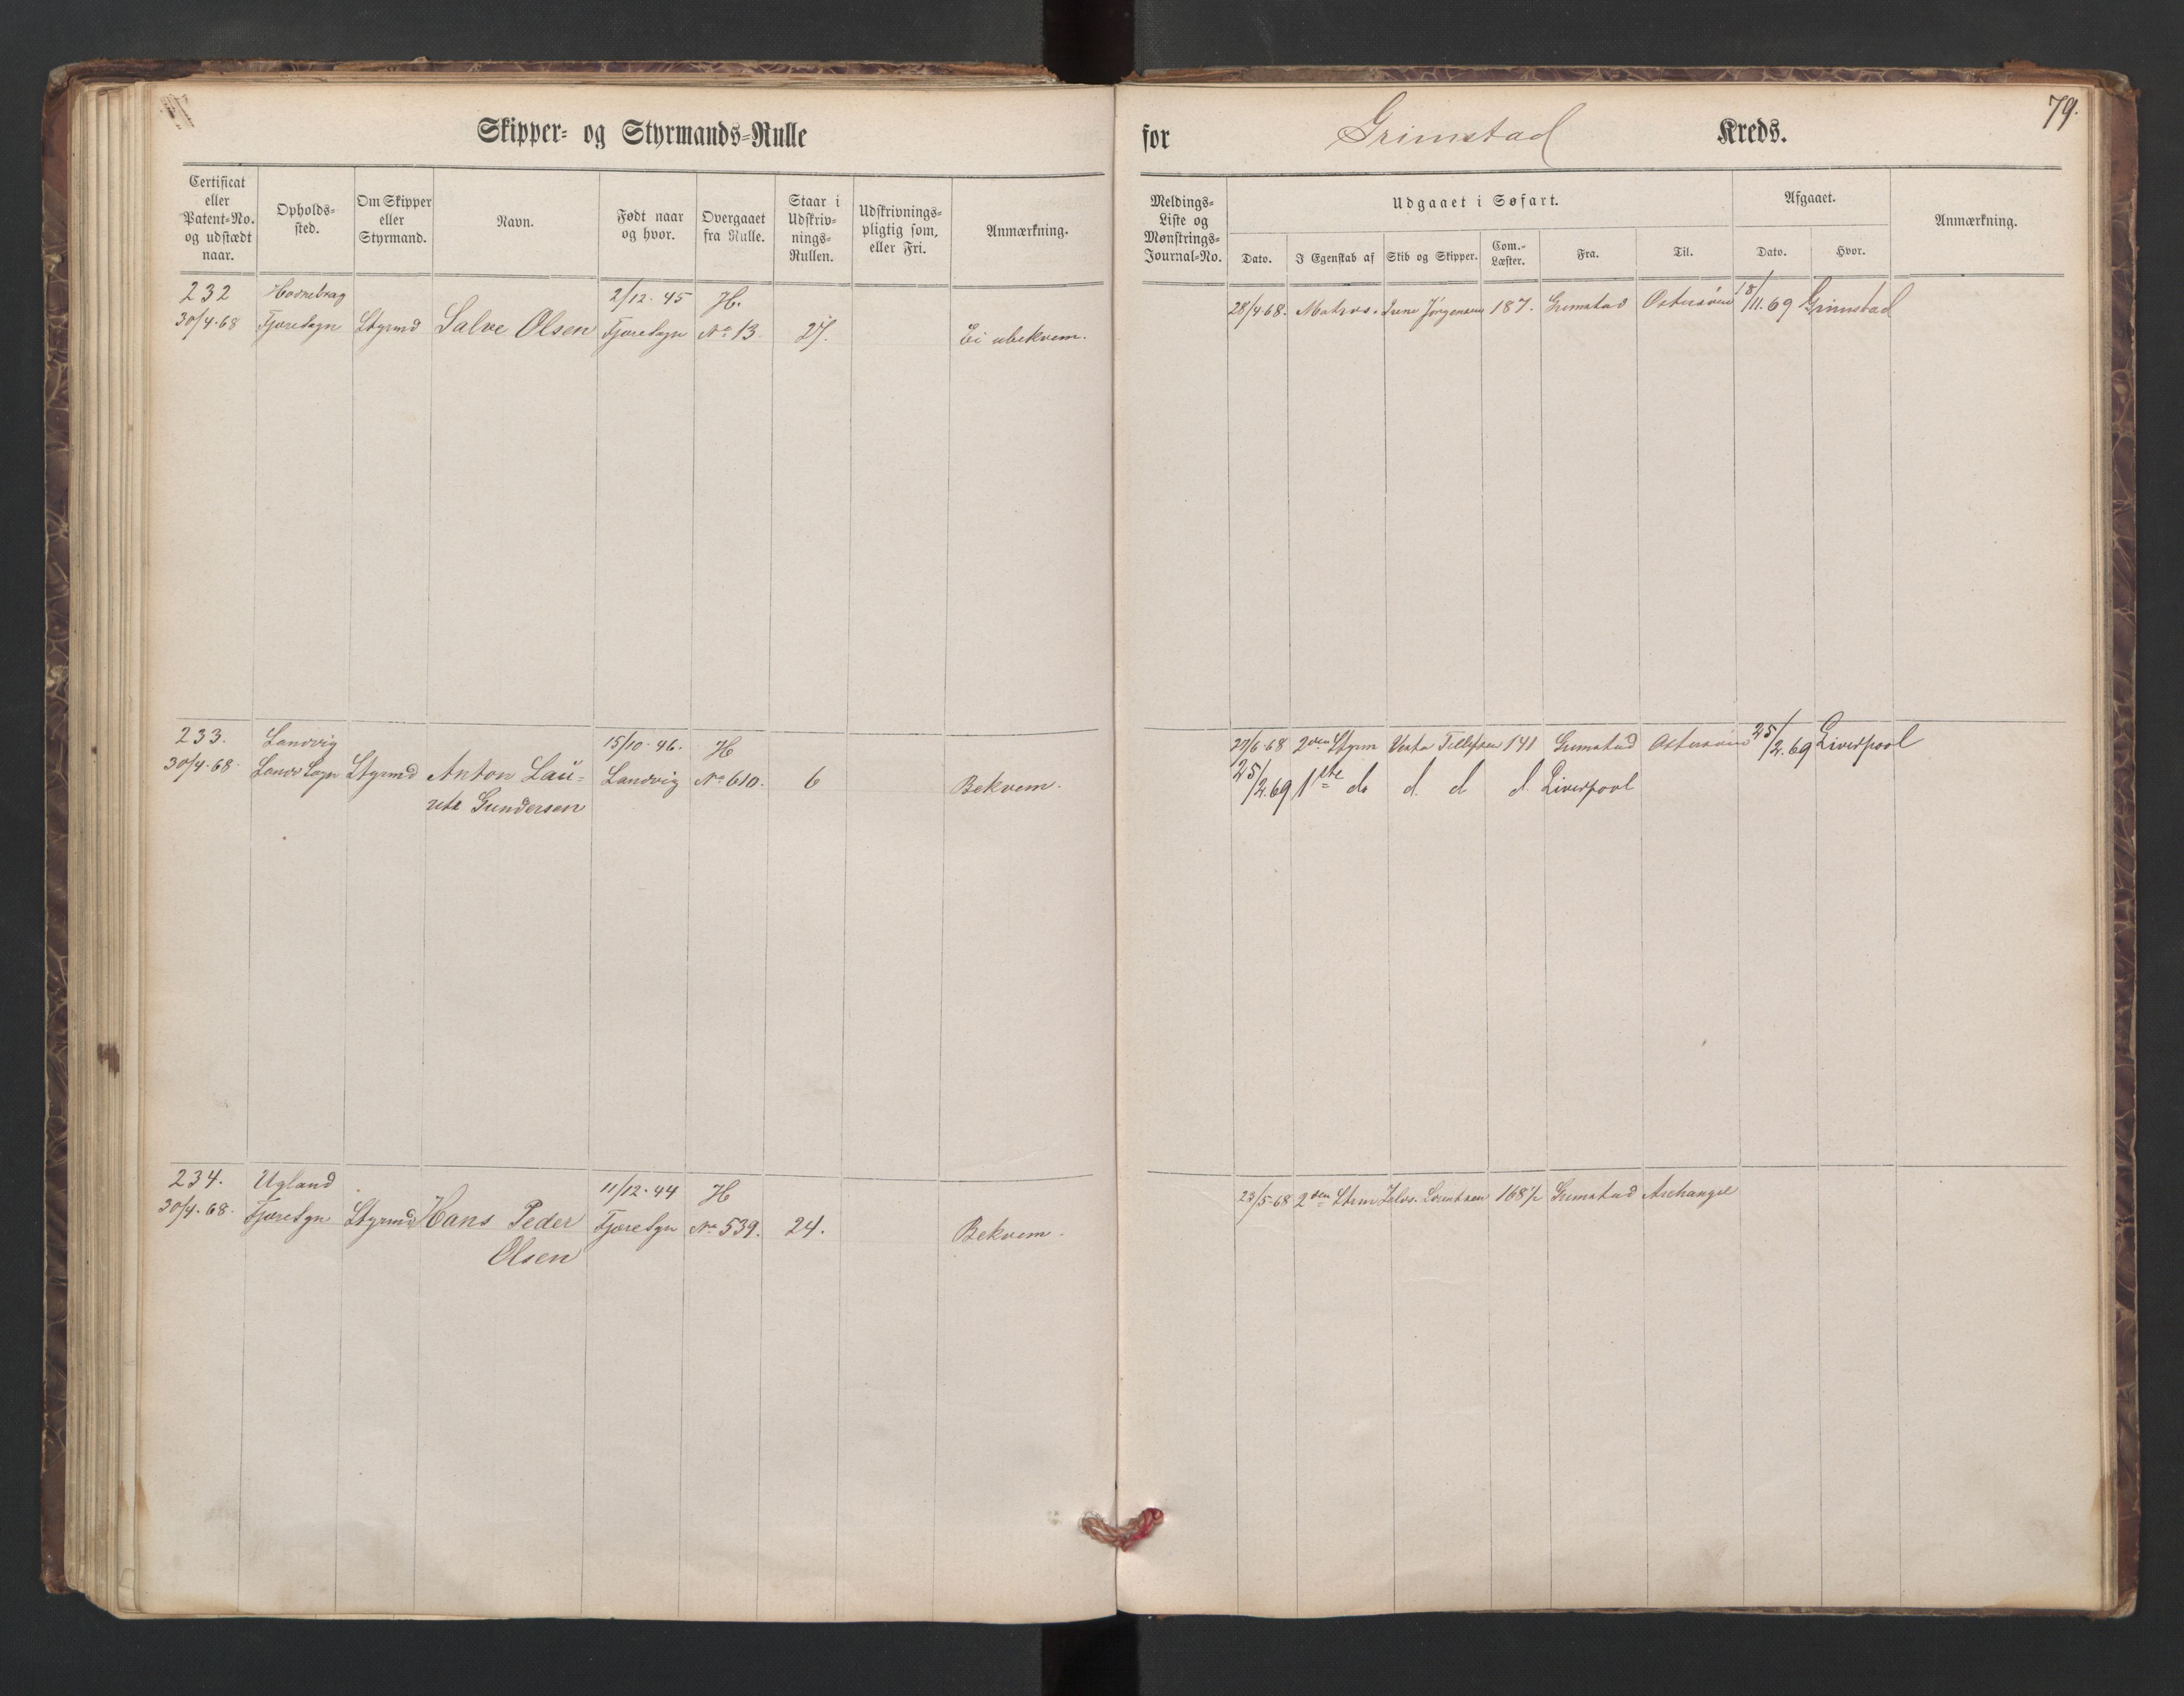 Skipper- og Styrmands-Rulle
for Grimstad Kreds.
79.
Certificat eller Patent-No. og udstædt naar.
Opholds-sted.
Om Skipper eller Styrmand.
Navn.
Født naar og hvor.
Overgaaet fra Rulle.
Staar i Udskriv-nings-Rullen.
Udskrivnings-pligtig som, eller Fri.
Anmærkning.
Meldings-Liste og Mønstrings-Journal-No.
Udgaaet i Søfart.
Dato.
I Egenskab af
Skib og Skipper.
Com.-Læster.
Fra.
Til.
Afgaaet.
Dato.
Hvor.
Anmærkning.
232 2/12. 45 H.
30/4.68 Fjæresogn Styrmd Salve Olsen Fjæresogn No 13. 27. Ei ubekvem.
28/4.68. Matros. Irene Jørgensen 187. Grimstad Østersøen 18/11.69 Grimstad
233. Landvig 15/10. 46. H
30/4.68. Landv Sogn Styrmd Anton Lau- Landvig No 610. 6 Bekvem.
ritz Gundersen
27/6.68 2den Styrm Vesta Tellefsen 141 Grimstad Østersøen 25/2.69 Liverpool
25/2.69 1ste do d. d d. Liverpool
234. Ugland 11/12. 44 H
30/4.68. Fjæresgn Styrmd Hans Peder Fjæresgn No 539. 24. Bekvem.
Olsen
23/5.68 2den Strm Lorentzen 168 1/2 Grimstad Archangel